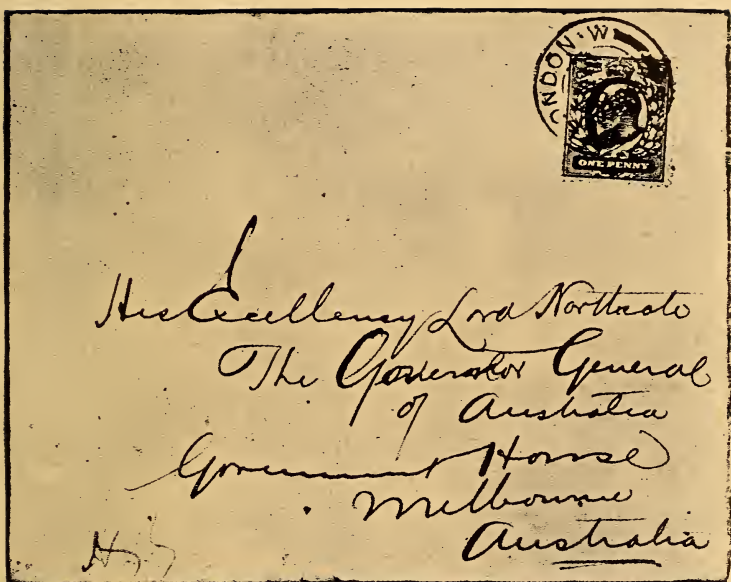 ONDON · W
ONE PENNY
His Excellency Lord Northcote
The Governor General
of Australia
Government House
Melbourne
Australia